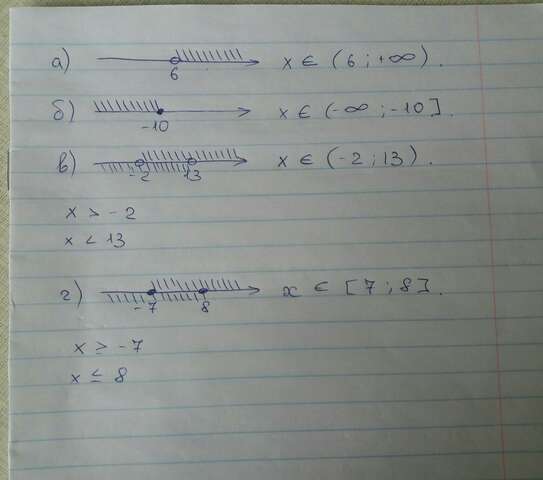 а) 6 x ∈ (6 ; +∞) .
б) -10 x ∈ (-∞ ; -10] .
в) -2 13 x ∈ (-2 ; 13) .
x > -2
x < 13
г) -7 8 x ∈ [7 ; 8] .
x ≥ -7
x ≤ 8